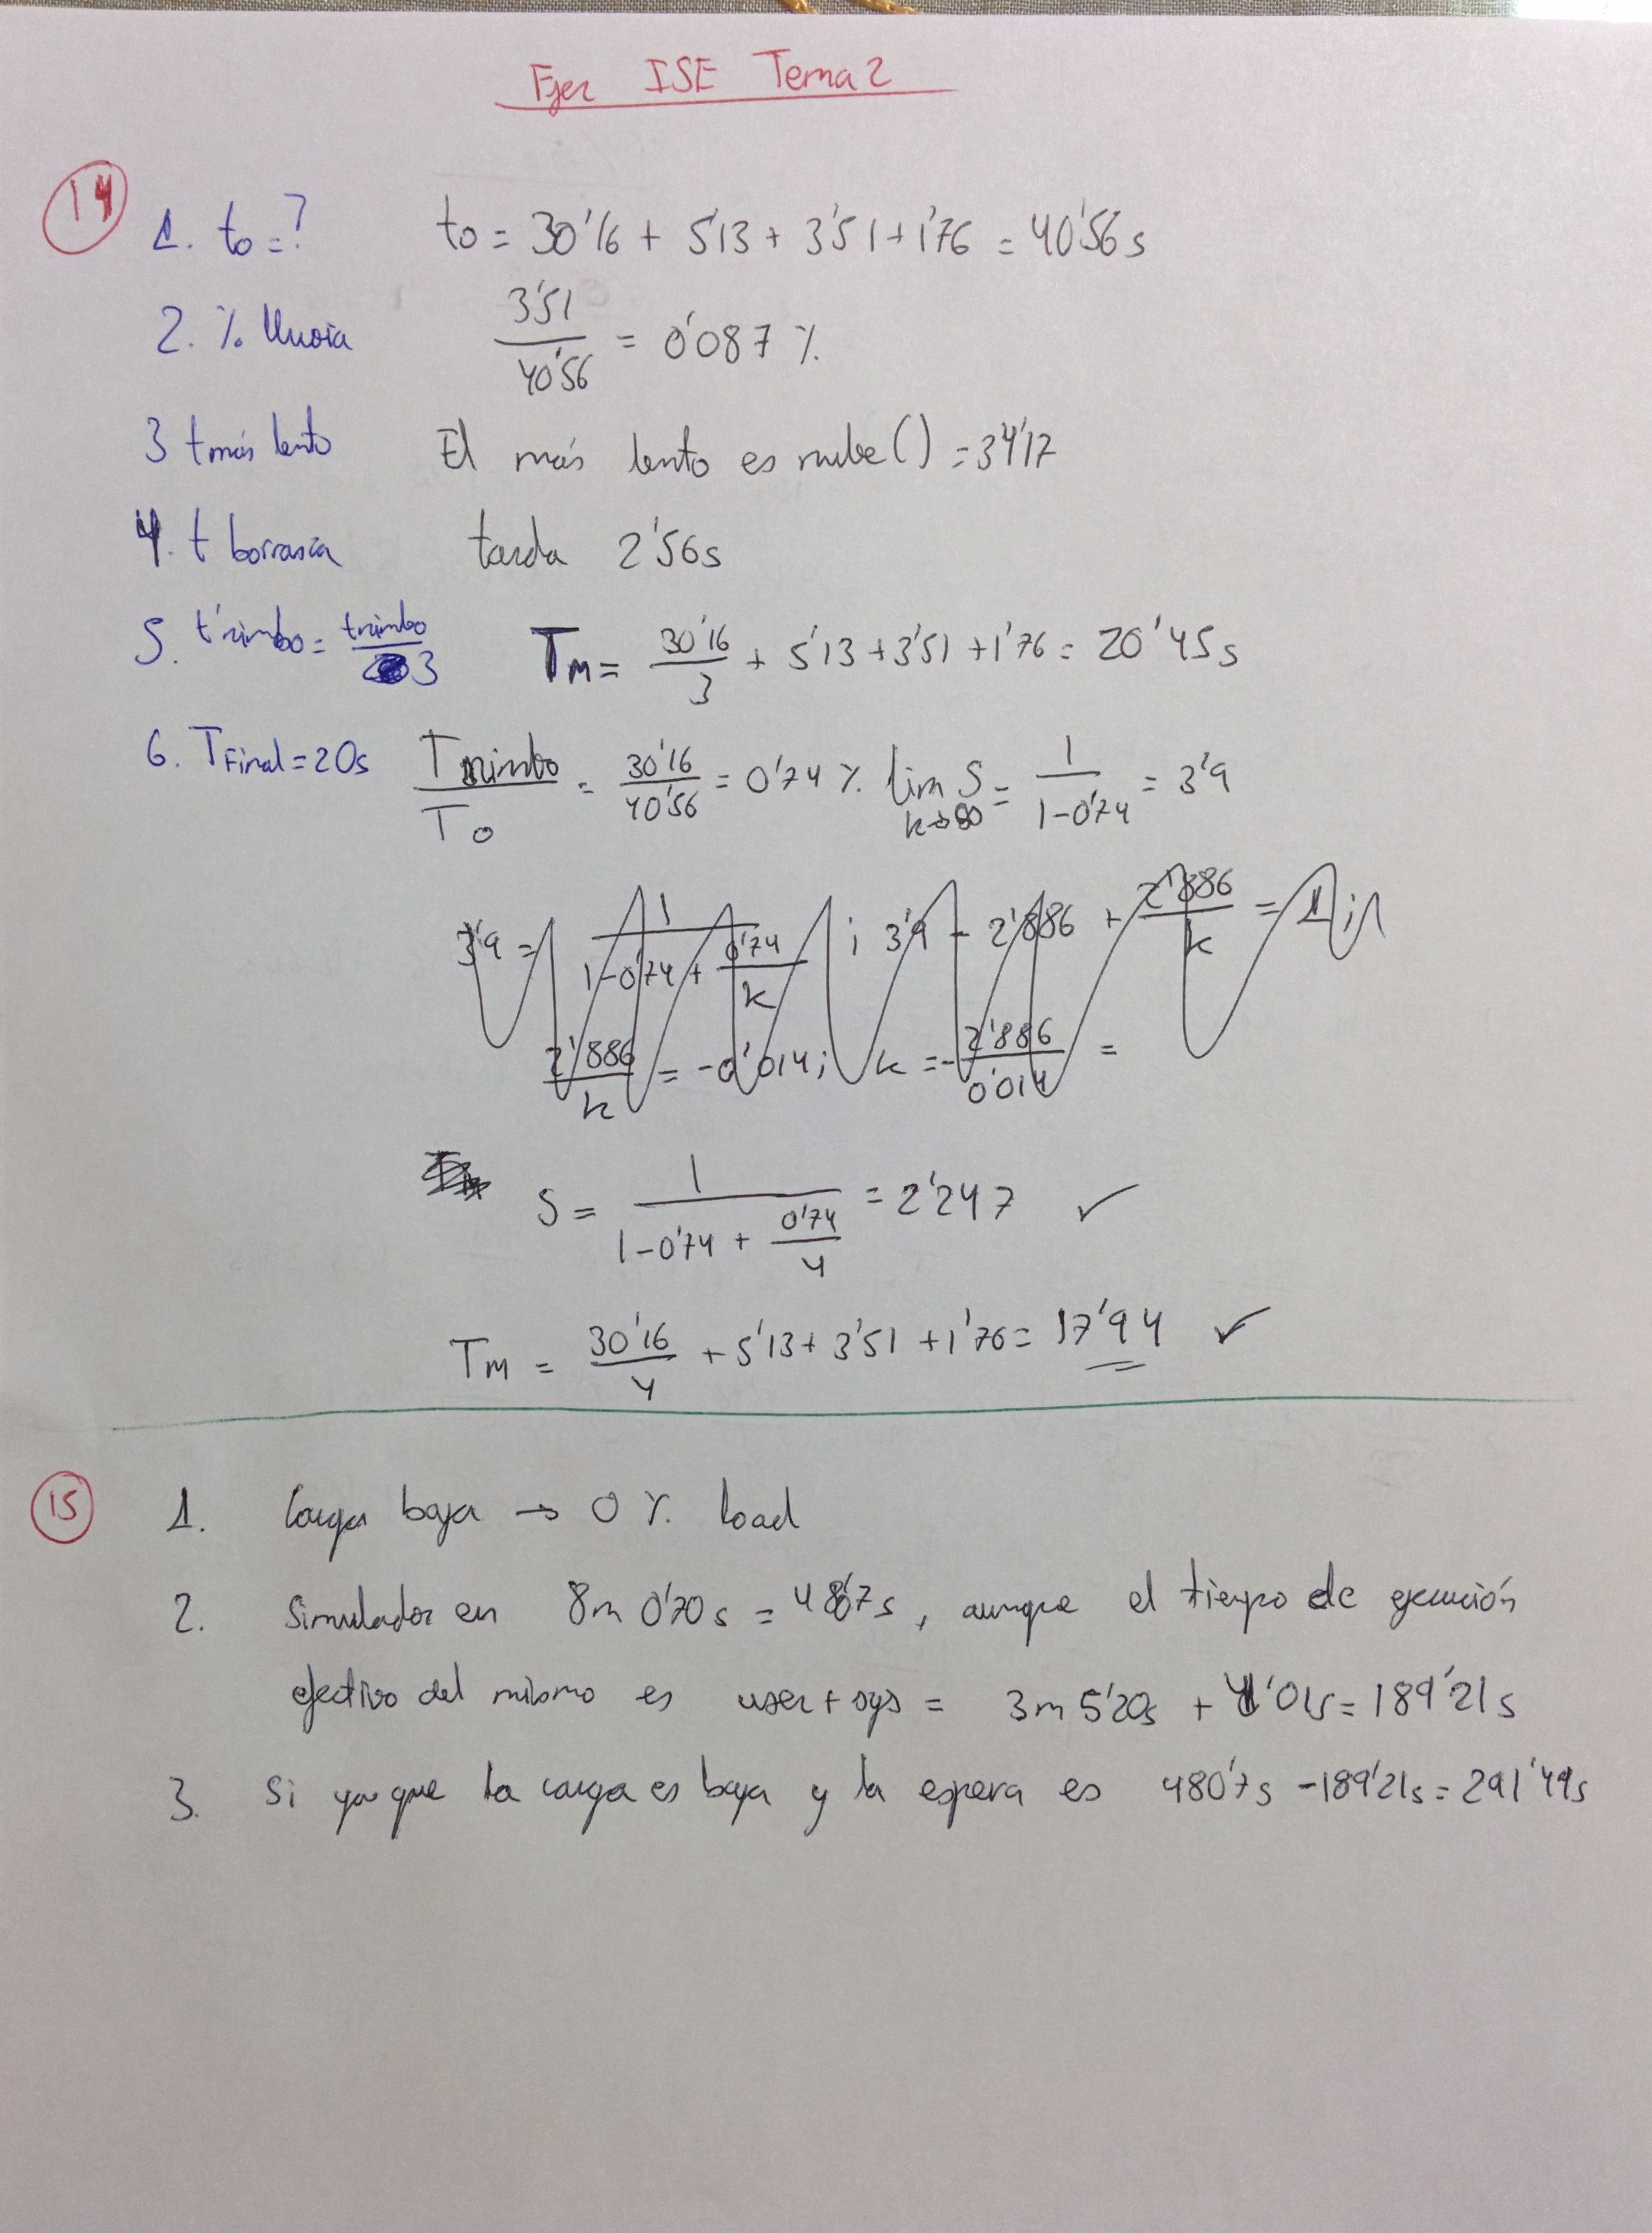 Ejer ISE Tema 2
14
1. to = ? to = 30'16 + 5'13 + 3'51 + 1'76 = 40'56 s
2. % lluvia 3'51 / 40'56 = 0'087 %
3 t más lento El más lento es nube() = 34'17
4. t borrasca tarda 2'56 s
5. t'nimbo = tnimbo / 3 TM = 30'16 / 3 + 5'13 + 3'51 + 1'76 = 20'45 s
6. TFinal = 20s Tnimbo / To = 30'16 / 40'56 = 0'74 % lim k→∞ S = 1 / 1-0'74 = 3'9
3'9 = 1 / 1-0'74 + 0'74 / k ; 3'9 - 2'886 + 2'886 / k = 1 ;
2'886 / k = -0'014 ; k = - 2'886 / 0'014 =
S = 1 / 1-0'74 + 0'74 / 4 = 2'247 ✓
TM = 30'16 / 4 + 5'13 + 3'51 + 1'76 = 17'94 ✓
15
1. Carga baja → 0 % load
2. Simulador en 8m 0'70 s = 480'7 s, aunque el tiempo de ejecución
efectivo del mismo es user + sys = 3m 5'20s + 4'01s = 189'21 s
3. Si ya que la carga es baja y la espera es 480'7 s - 189'21s = 291'49s